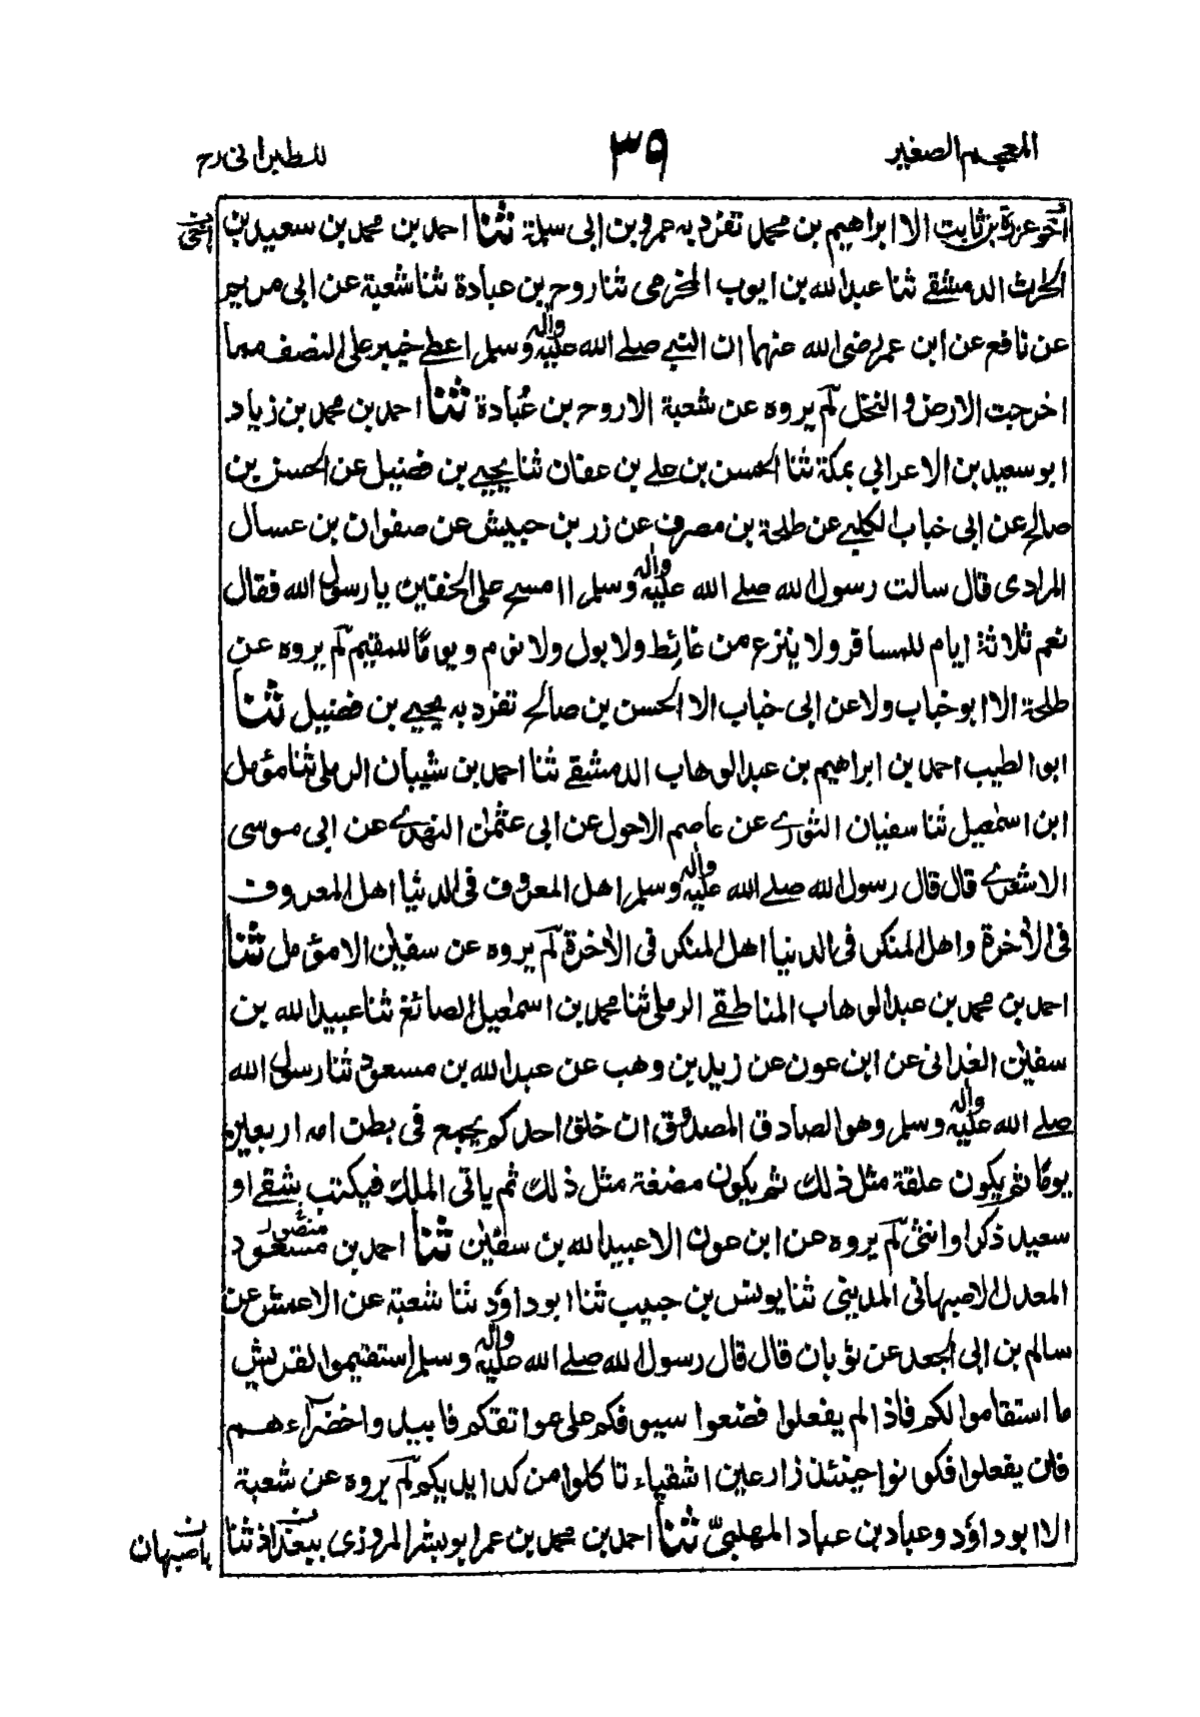 المعجم الصغير
٣٩
للطبرانى رح
اخو عزرة بن ثابت الا ابراهيم بن محمد تفرد به عمرو بن ابى سلمة ثنا احمد بن محمد بن سعيد بن
الحرث الدمشقے ثنا عبد الله بن ايوب المخرمى ثنا روح بن عبادة ثنا شعبة عن ابى مريم
عن نافع عن ابن عمر رضى الله عنهما ان النبے صلے الله عليه واله وسلم اعطے خيبر على النصف مما
اخرجت الارض و النخل لم يروه عن شعبة الا روح بن عُبادة ثنا احمد بن محمد بن زياد
ابو سعيد بن الاعرابي بمكة ثنا الحسن بن علے بن عفان ثنا يحيے بن فضيل عن الحسن بن
صالح عن ابى خباب الكلبے عن طلحة بن مصرف عن زر بن حبيش عن صفوان بن عسال
المرادى قال سالت رسول الله صلے الله عليه واله وسلم اامسح على الخفين يا رسول الله فقال
نعم ثلاثة ايام للمسافر ولا ينزع من غائط ولا بول ولا نوم و يومًا للمقيم لم يروه عن
طلحة الا ابو خباب ولا عن ابى خباب الا الحسن بن صالح تفرد به يحيے بن فضيل ثنا
ابو الطيب احمد بن ابراهيم بن عبد الوهاب الدمشقے ثنا احمد بن شيبان الرملى ثنا مؤمل
ابن اسمٰعيل ثنا سفيان الثورے عن عاصم الاحول عن ابى عثمٰن النهدے عن ابى موسى
الاشعرے قال قال رسول الله صلے الله عليه واله وسلم اهل المعروف فى الدنيا اهل المعروف
فى الاٰخرة واهل المنكر فى الدنيا اهل المنكر فى الاٰخرة لم يروه عن سفيٰن الا مؤمل ثنا
احمد بن محمد بن عبد الوهاب المناطقے الرملى ثنا محمد بن اسمٰعيل الصائغ ثنا عبيد الله بن
سفيٰن الغدانى عن ابن عون عن زيد بن وهب عن عبد الله بن مسعود ثنا رسول الله
صلے الله عليه واله وسلم وهو الصادق المصدوق ان خلق احدكم يجمع فى بطن امه اربعين
يومًا ثم يكون علقة مثل ذلك ثم يكون مضغة مثل ذلك ثم ياتى الملك فيكتب شقے او
سعيد ذكرا وانثى لم يروه عن ابن عون الا عبيد الله بن سفيٰن ثنا احمد بن مسعود
المعدل الاصبهانى المدينى ثنا يونس بن حبيب ثنا ابو داؤد ثنا شعبة عن الاعمش عن
سالم بن ابى الجعد عن ثوبان قال قال رسول الله صلے الله عليه واله وسلم استقيموا لقريش
ما استقاموا لكم فاذا لم يفعلوا فضعوا سيوفكم على عواتقكم فابيدوا خضرآءهم
فان لم يفعلوا فكونوا حينئذ زارعين اشقياء تاكلوا من كد ايديكم لم يروه عن شعبة
الا ابو داؤد وعباد بن عباد المهلبىّ ثنا احمد بن محمد بن عمر ابو بشر المروزى ببغداذ ثنا
باصبهان